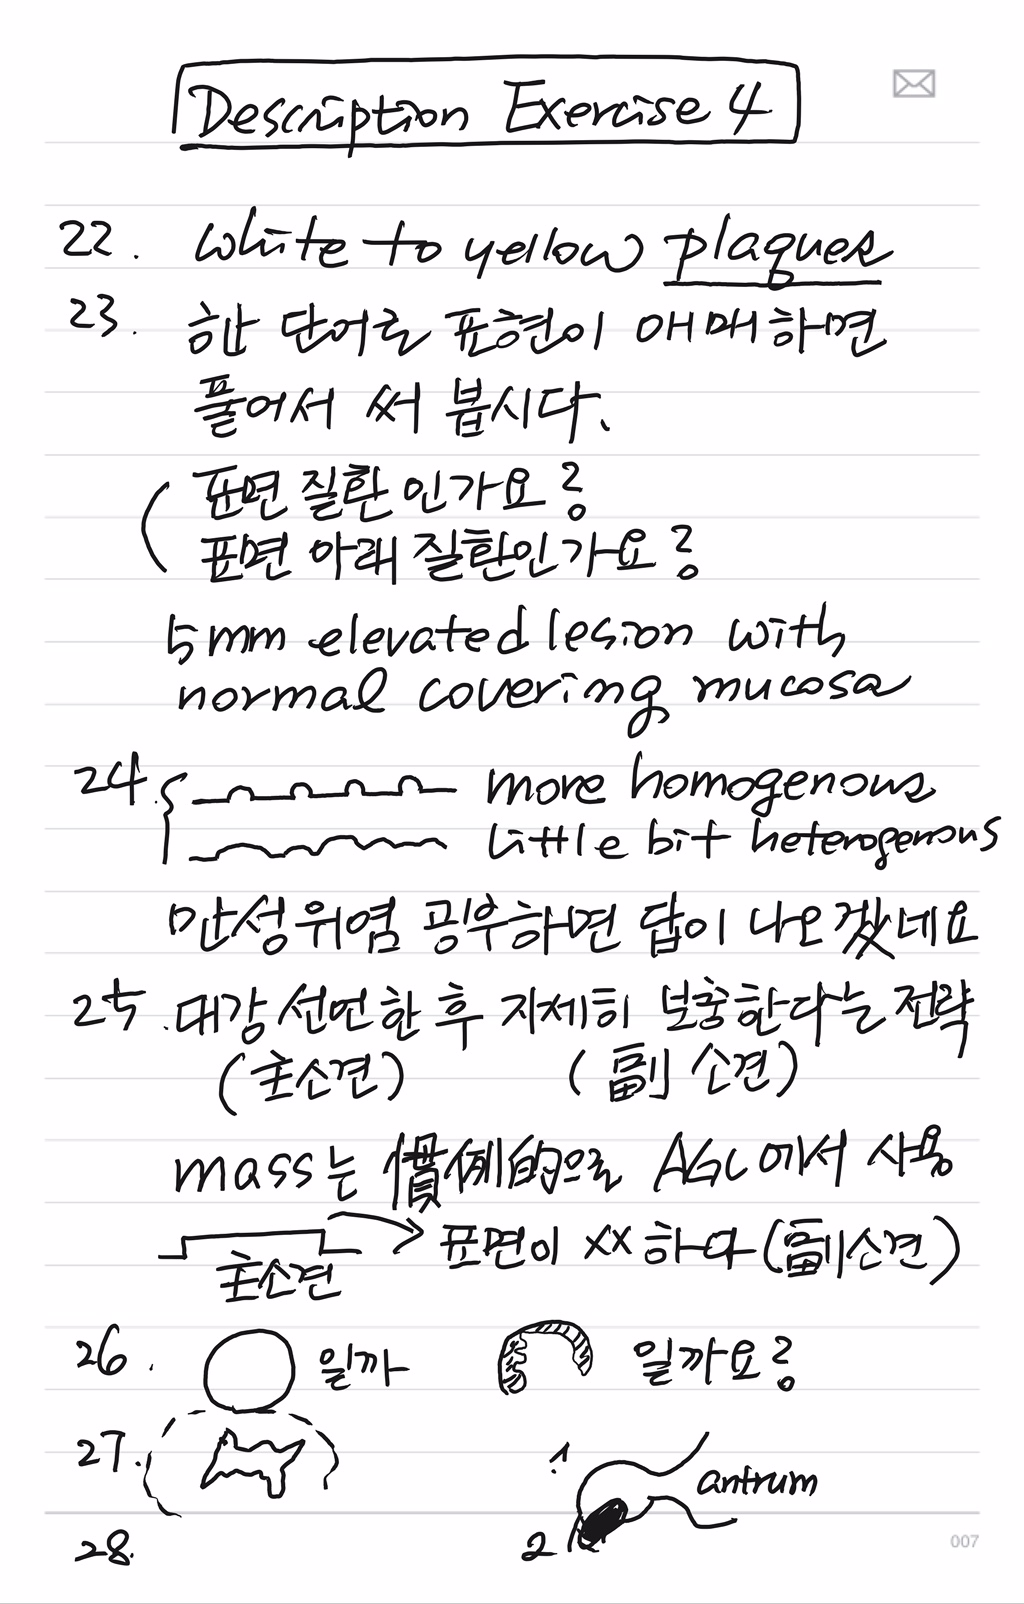 Description Exercise 4
22. white to yellow plaques
23. 한 단어로 표현이 애매하면
풀어서 써 봅시다.
표면 질환인가요?
표면 아래 질환인가요?
5mm elevated lesion with
normal covering mucosa
24. more homogenous
little bit heterogenous
만성위염 공부하면 답이 나오겠네요
25. 대강 선언한 후 자세히 보충한다는 전략
(主소견) (副 소견)
mass는 慣例的으로 AGC에서 사용
표면이 xx하다 (副소견)
主소견
26. 일까 일까요?
27. 1
antrum
28. 2
007